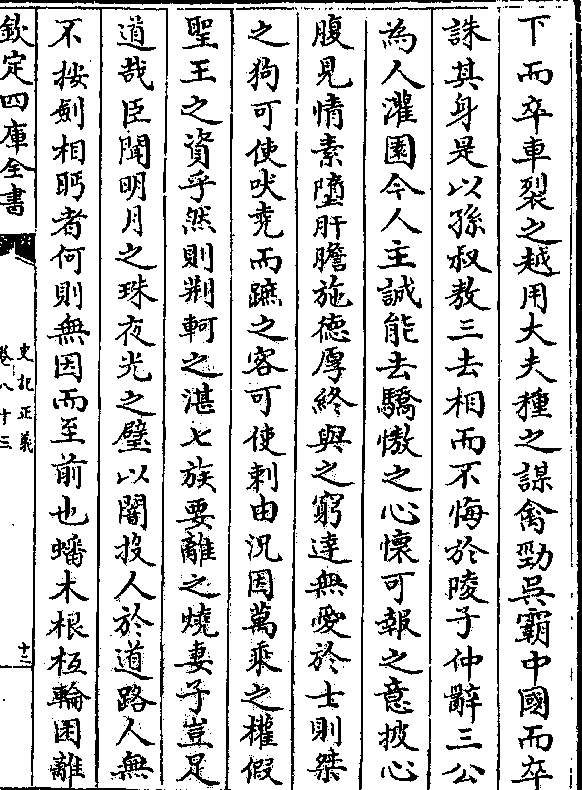 下而卒車裂之越用大夫種之謀禽勁吳霸中國而卒
誅其身是以孫叔敖三去相而不悔於陵子仲辭三公
為人灌園今人主誠能去驕慠之心懷可報之意披心
腹見情素墮肝膽施徳厚終與之窮達無愛於士則桀
之狗可使吠堯而蹠之客可使刺由況因萬乘之權假
聖王之資乎然則荆軻之湛七族要離之燒妻子豈足
道哉臣聞明月之珠夜光之璧以闇投人於道路人無
不按劍相眄者何則無因而至前也蟠木根柢輪囷離
欽定四庫全書
史記正義
卷八十三
十二